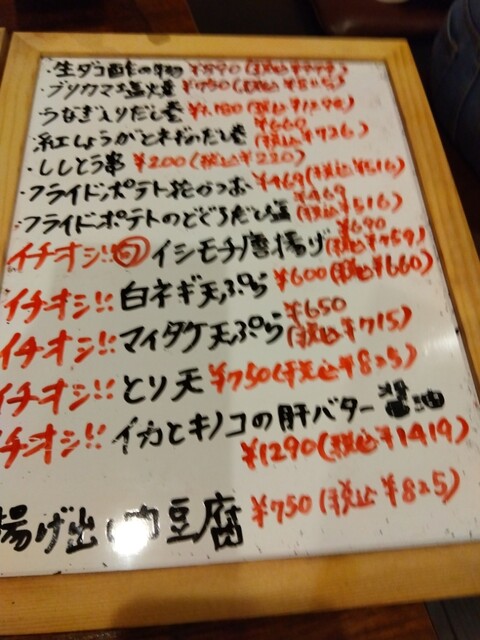 ・生ダコ酢の物 ¥890(税込¥979)
・ブリカマ塩焼 ¥750(税込¥825)
うなぎ入りだし巻 ¥1,180(税込¥1298)
・紅しょうがとネギのだし巻 ¥660(税込¥726)
・ししとう串 ¥200(税込¥220)
・フライドポテト花かつお ¥469(税込¥516)
・フライドポテトのどぐろだし塩 ¥469(税込¥516)
イチオシ!! 旬 イシモチ唐揚げ ¥690(税込¥759)
イチオシ!! 白ネギ天ぷら ¥600(税込¥660)
イチオシ!! マイタケ天ぷら ¥650(税込¥715)
イチオシ!! とり天 ¥750(税込¥825)
イチオシ!! イカとキノコの肝バター醤油 ¥1290(税込¥1419)
揚げ出し肉豆腐 ¥750(税込¥825)